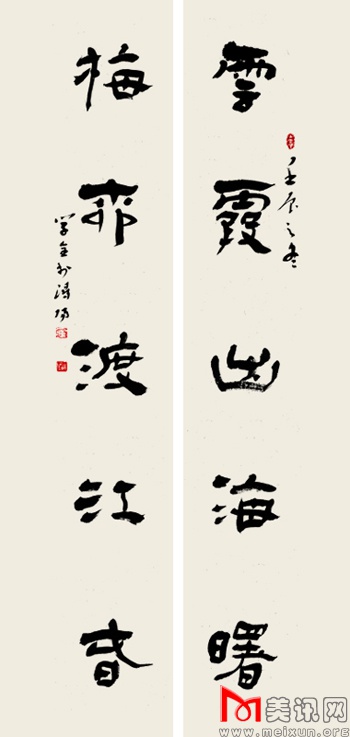 雲霞出海曙
壬辰之冬
梅柳渡江春
美讯网
www.meixun.org